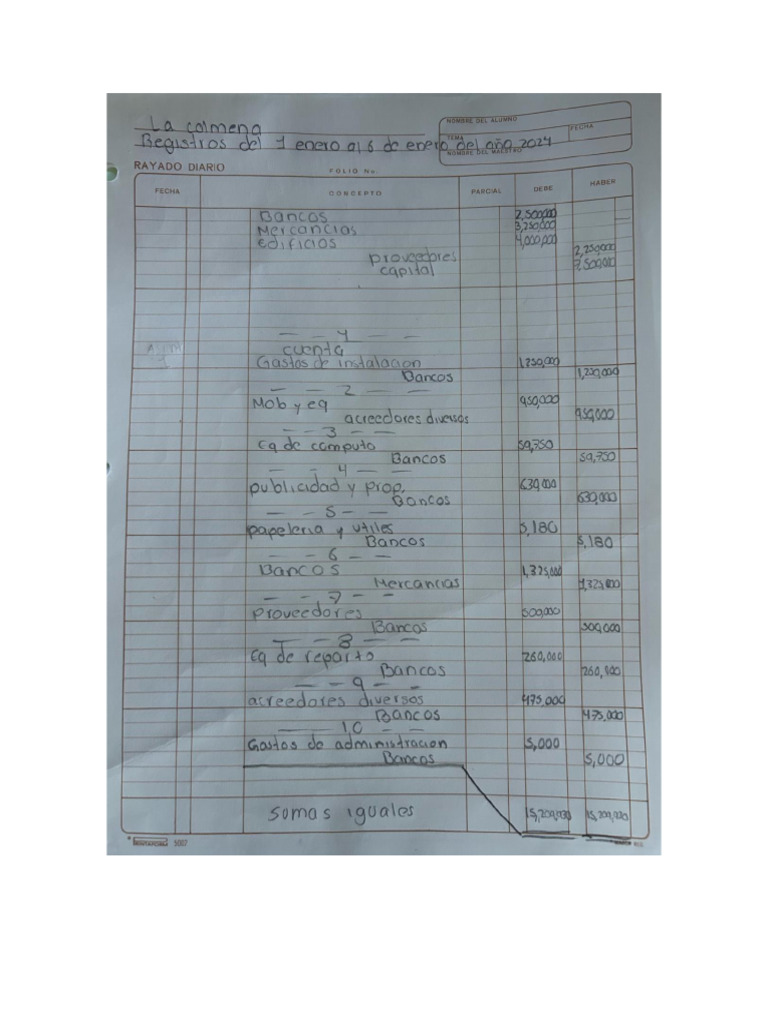 La colmena
Registros del 1 enero al 6 de enero del año 2024
NOMBRE DEL ALUMNO
TEMA
FECHA
NOMBRE DEL MAESTRO
RAYADO DIARIO FOLIO No.
FECHA CONCEPTO PARCIAL DEBE HABER
Bancos 2,500,000
Mercancias 3,250,000
edificios 4,000,000
proveedores 2,250,000
capital 7,500,000
cuenta
Gastos de instalacion 1,250,000
Bancos 1,250,000
2
Mob y eq 950,000
acreedores diversos 950,000
3
eq de computo 59,750
Bancos 59,750
4
publicidad y prop. 630,000
Bancos 630,000
5
papeleria y utiles 5,180
Bancos 5,180
6
Bancos 1,325,000
Mercancias 1,325,000
7
proveedores 300,000
Bancos 300,000
8
eq de reparto 260,000
Bancos 260,000
9
acreedores diversos 475,000
Bancos 475,000
10
Gastos de administracion 5,000
Bancos 5,000
Sumas iguales
5007